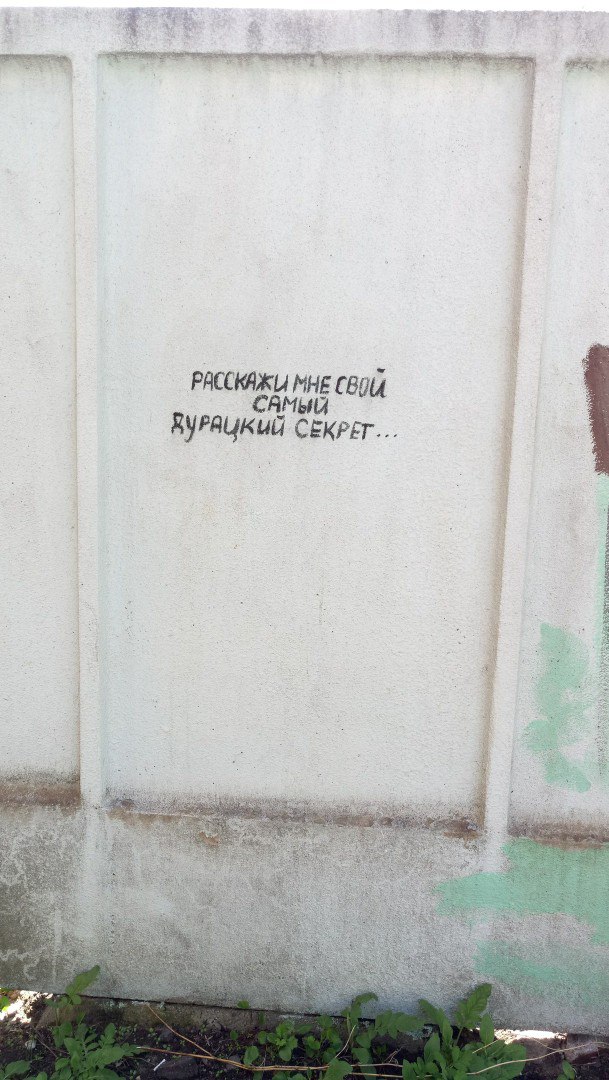 РАССКАЖИ МНЕ СВОЙ
САМЫЙ
ДУРАЦКИЙ СЕКРЕТ...